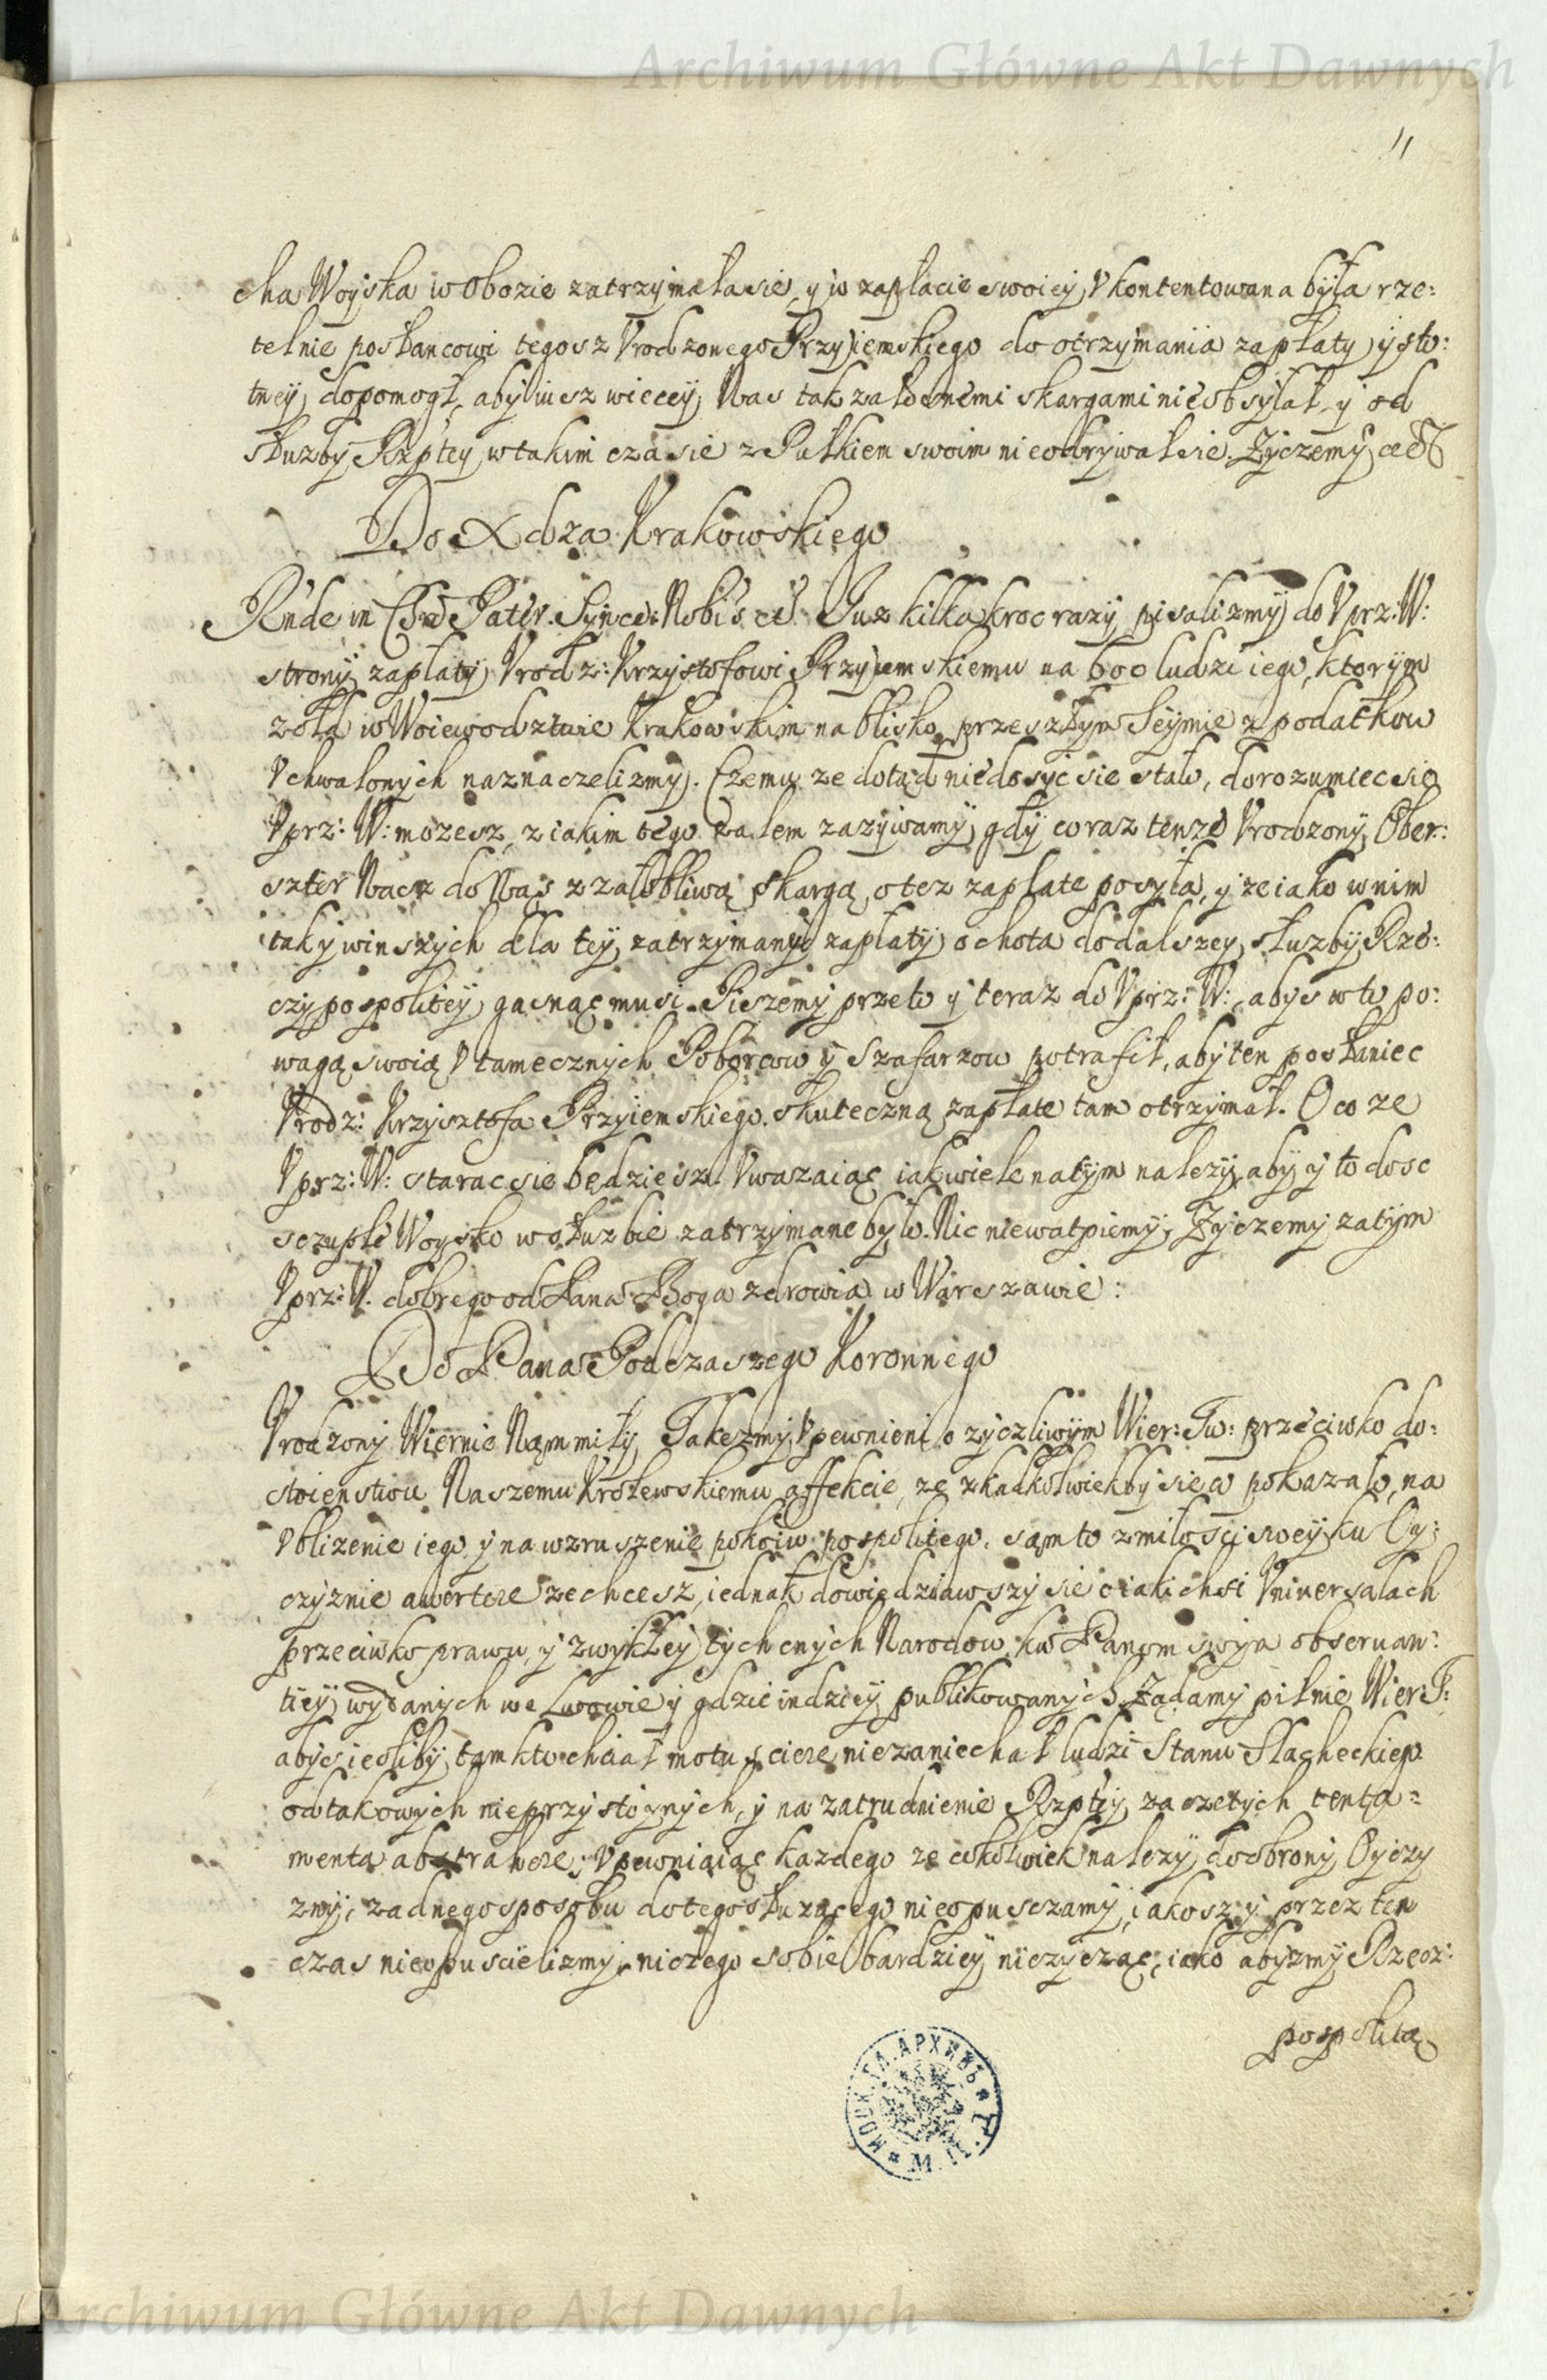 Archiwum Główne Akt Dawnych
11
cha Woyska w obozie zatrzymała sie, y w zapłacie swoiey Vkontentowana była rze:
telnie posłancowi tegosz Vrodzonego Przyiemskiego do otrzymania zapłaty ysto:
tney dopomogł, aby iusz wiecey Nas tak załosnemi skargami nie obsyłał y od
słuzby Rzptey w takim czasie z Pułkiem swoim nie odrywał sie. Zyczemy
Do Xdza Krakowskiego
Rnde in Chro Pater. Syncé: Nobis Juz kilkakroc razy pisalizmy do Vprz: W:
strony zapłaty Vrodz: Krzysztofowi Przyiemskiemu na 600 ludzi iego, ktorym
zołd w Woiewodztwie Krakowskim na blisko przeszłym Seymie z podatkow
Vchwalonych naznaczelizmy. Czemu ze dotąd nie dosyc sie stało, dorozumiec sie
Vprz: W: mozesz, z iakim tego zalem zazywamy, gdy coraz tenze Vrodzony Ober:
szter Nasz do Nas z załobliwą skargą, o tez zapłate posyła, y ze iako w nim
tak y w inszych dla tey zatrzymaney zapłaty ochota do dalszey słuzby Rze:
czypospolitey gasnąc musi. Piszemy przeto y teraz do Vprz: W:, abys w to po:
wagą swoią V tamecznych Poborcow y Szafarzow potrafił, aby ten posłaniec
Vrodz: Krzysztofa Przyiemskiego skuteczną zapłate tam otrzymał. O co ze
Vprz: W: starac sie będziesz Vwazaiąc iak wiele na tym nalezy, aby y to dosc
sczupłe Woysko w słuzbie zatrzymane było. Nic niewatpiemy, Zyczemy zatym
Vprz: W. dobrego od Pana Boga zdrowia w Warszawie:
Do Pana Podczaszego Koronnego
Vrodzony Wiernie Nam miły, Takezmy Vpewnieni o zyczliwym Wier: Tw: przeciwko do:
stoienstwu Naszemu Krolewskiemu affekcie, ze zkadkolwiekby sie co pokazało, na
Vblizenie iego y na wzruszenie pokoiu pospolitego, sam to z miłosci swey ku Oy:
czyznie avertere zechcesz, iednak dowiedziawszy sie o iakichsi Vniversalach
przeciwko prawu y zwykłey tychcnych Narodow, ku Panom swym observan:
tiey wydanych we Lwowie y gdzie indziey publikowanych Ządamy pilnie Wier: T:
abys iesliby tam kto chciał motus ciere, niezaniechał ludzi Stanu Slacheckiego
od takowych nieprzystoynych, y na zatrudnienie Rzptey zaczetych tenta=
menta abstrahere; Vpewniaiąc kazdego ze cokolwiek nalezy do obrony Oyczy
zny, zadnego sposobu do tego słuzącego nieopusczamy, iakosz y przez ten
czas nieopuscielizmy, niczego sobie bardziey nieczycząc, iako abyzmy Rzecz:
pospolitą
МОСК. ГЛ. АРХИВЪ
Archiwum Główne Akt Dawnych